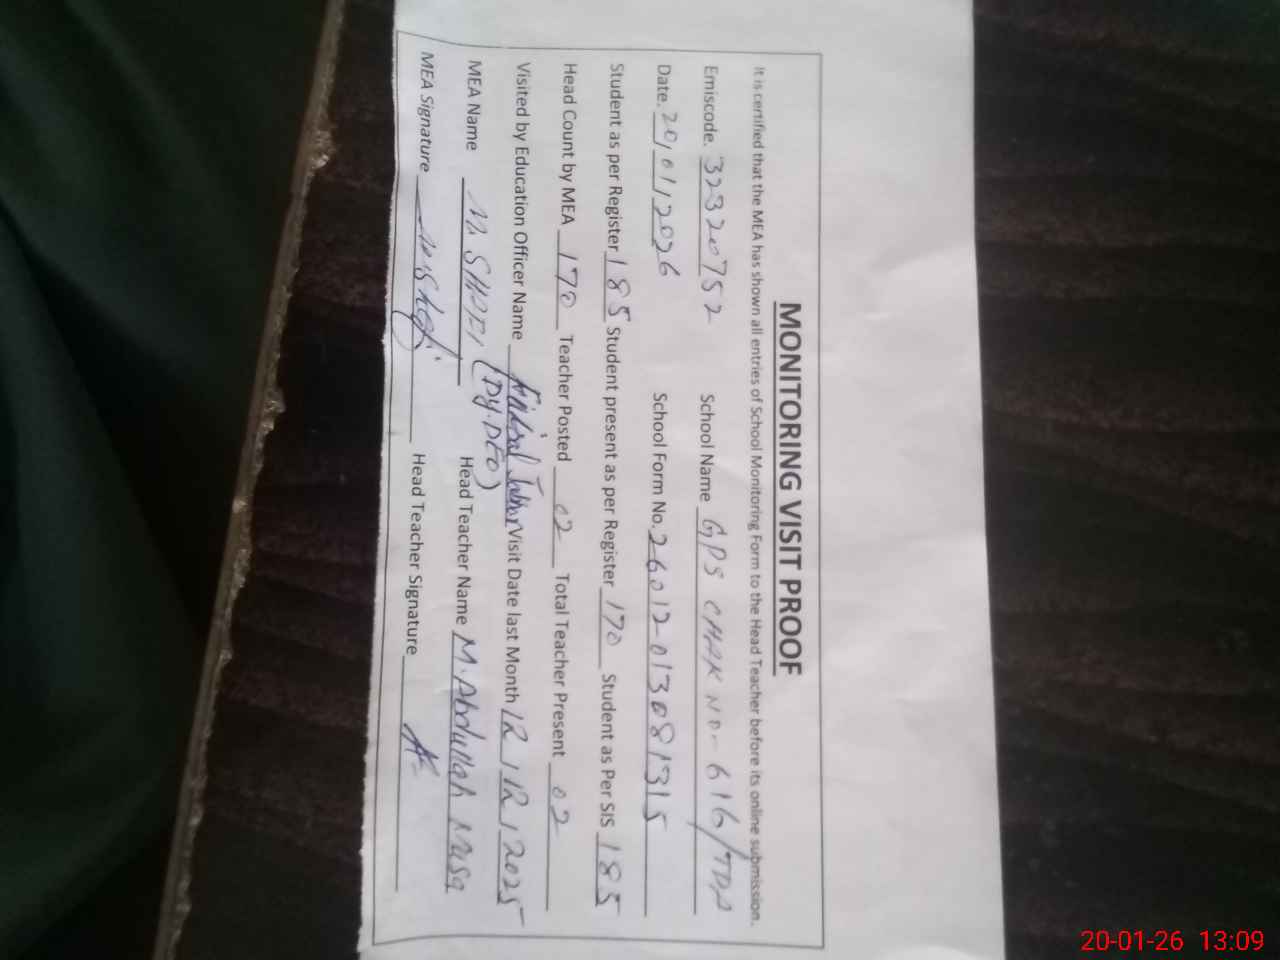 MONITORING VISIT PROOF
It is certified that the MEA has shown all entries of School Monitoring Form to the Head Teacher before its online submission.
Emiscode. 32320752 School Name GPS CHAK NO- 616/TDA
Date. 20/01/2026 School Form No. 26012013081315
Student as per Register 185 Student present as per Register 170 Student as Per SIS 185
Head Count by MEA 170 Teacher Posted 02 Total Teacher Present 02
Visited by Education Officer Name Visit Date last Month 12/12/2025
(DY.DEO)
MEA Name M SHAFI Head Teacher Name M.Abdullah Musa
MEA Signature Head Teacher Signature
20-01-26 13:09